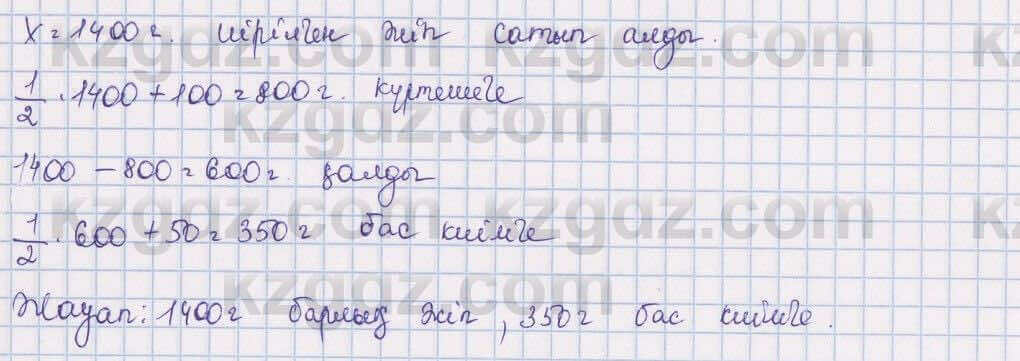 x = 1400 г. иірілген жіп сатып алды.
1/2 · 1400 + 100 = 800 г. күртешеге
1400 - 800 = 600 г. қалды
1/2 · 600 + 50 = 350 г бас киімге
Жауап: 1400 г барлық жіп, 350 г бас киімге.
kzgdz.com
kzgdz.com
kzgdz.com
kzgdz.com